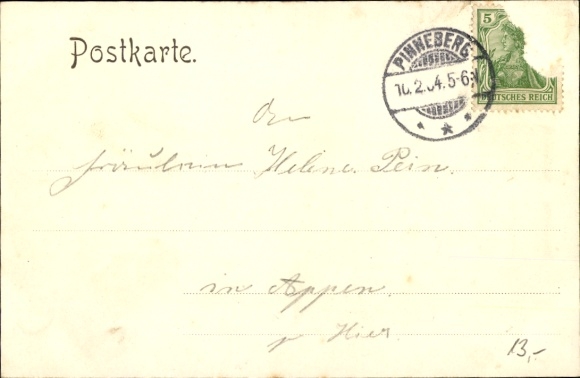 Postkarte.
5
PINNEBERG
10.2.04.5-6N
DEUTSCHES REICH
An
Fräulein Helene Pein.
in Appen.
p Hier.
13,-